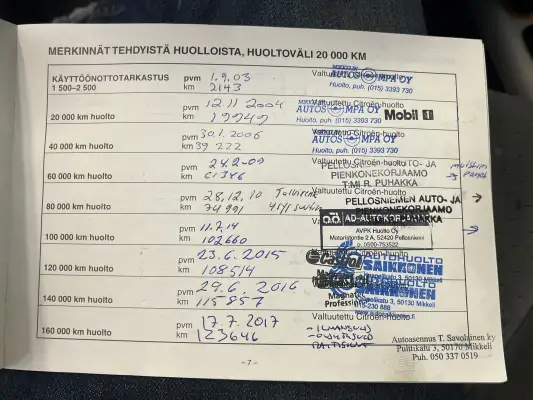 MERKINNÄT TEHDYISTÄ HUOLLOISTA, HUOLTOVÄLI 20 000 KM
KÄYTTÖÖNOTTOTARKASTUS pvm 1.9.03 Valtuutettu Citroën-huolto
1 500–2 500 km 2143 AUTOS MPA OY
Huolto, puh. (015) 3393 730
pvm 12.11 2004 Valtuutettu Citroën-huolto
20 000 km huolto km 19949 AUTOS MPA OY Mobil 1
Huolto, puh. (015) 3393 730
pvm 30.1.2006 Valtuutettu Citroën-huolto
40 000 km huolto km 39 222 AUTOS MPA OY
Huolto, puh. (015) 3393 730
pvm 24.2-09 Valtuutettu Citroën-huolto
60 000 km huolto km 61346 PELLOSNIEMEN AUTO- JA
PIENKONEKORJAAMO
T:MI R. PUHAKKA
pvm 28.12.10 Valtuutettu Citroën-huolto
80 000 km huolto km 74991 PELLOSNIEMEN AUTO- JA
PIENKONEKORJAAMO
PUHAKKA
pvm 11.7.14 AD-AUTOKORJAAMO
100 000 km huolto km 102660 AVPK Huolto Oy
Mataristontie 2 A, 52420 Pellosniemi
p. 0500-753522
pvm 23.6.2015 AUTOHUOLTO
120 000 km huolto km 108514 SAIKKONEN
3, 50130 Mikkeli
pvm 29.6.2016 AUTOHUOLTO
140 000 km huolto km 115857 SAIKKONEN
Magnatec
Professional 3, 50130 Mikkeli
015-230 888
pvm 17.7.2017 Valtuutettu Citroën-huolto
160 000 km huolto km 123646
Autoasennus T. Savolainen ky
Pulttikatu 3, 50170 Mikkeli
Puh. 050 337 0519
–7–